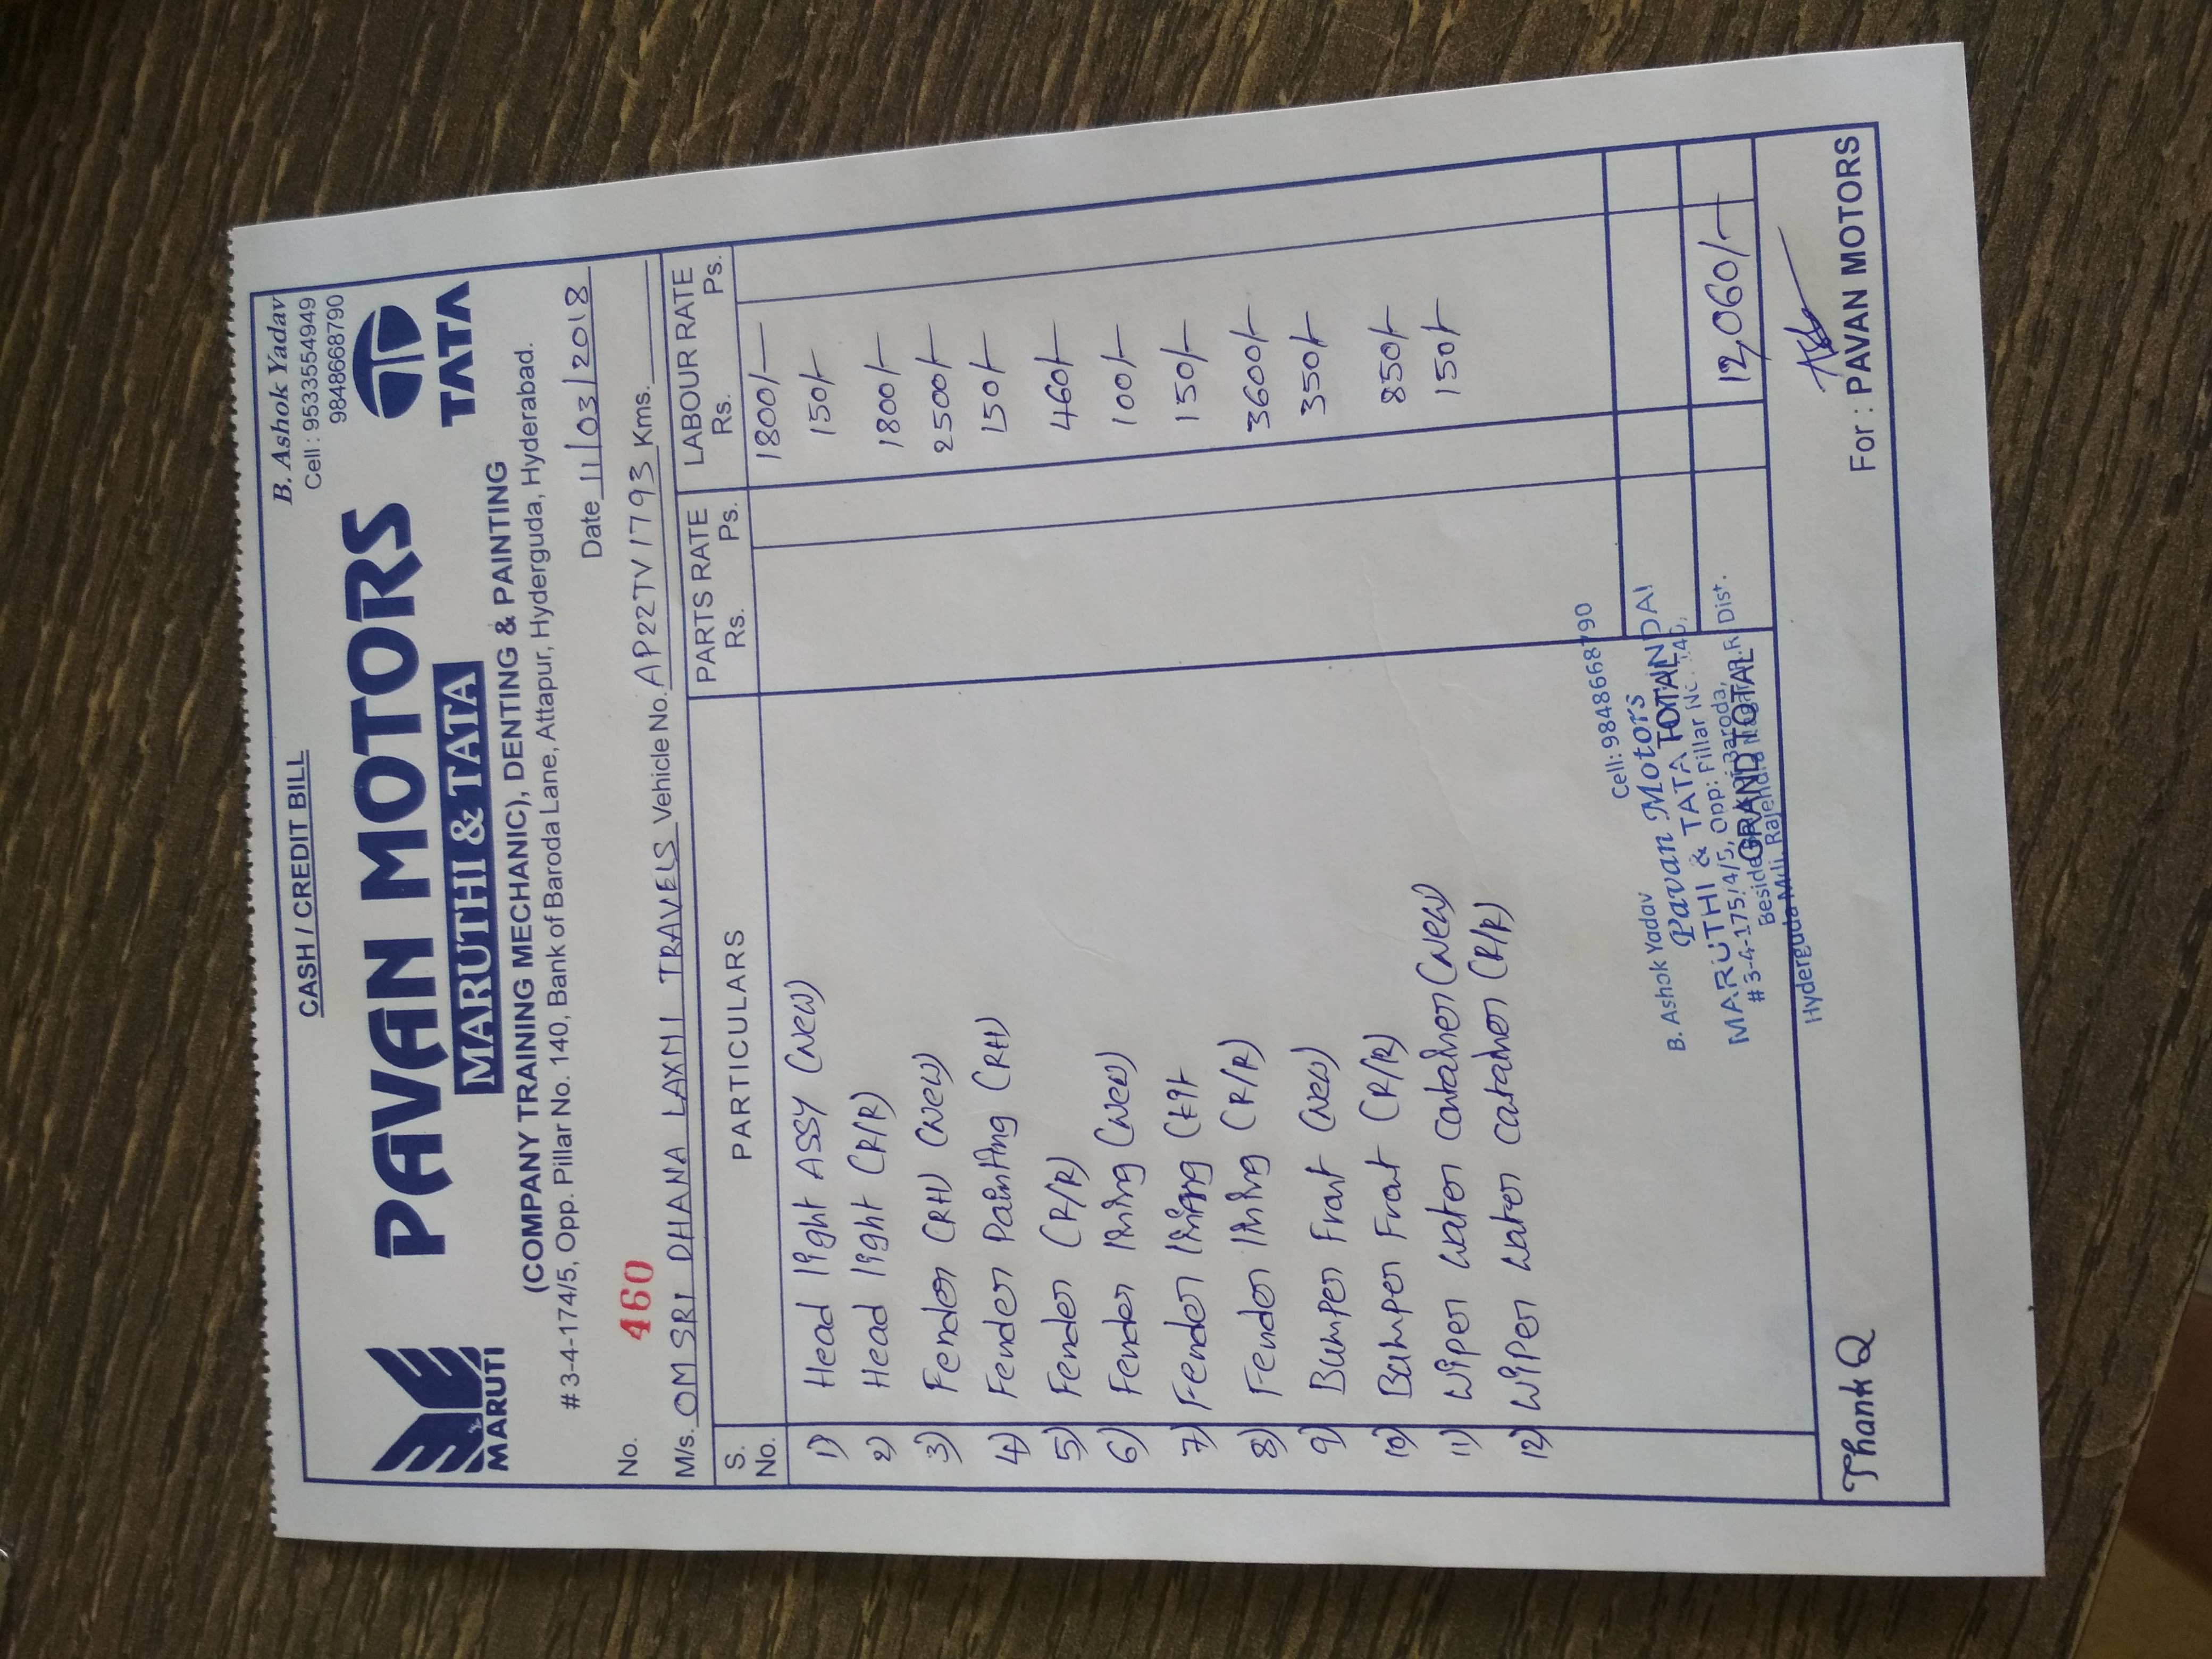 CASH / CREDIT BILL
B. Ashok Yadav
Cell : 9533554949
9848668790
MARUTI
PAVAN MOTORS
MARUTHI & TATA
TATA
(COMPANY TRAINING MECHANIC), DENTING & PAINTING
# 3-4-174/5, Opp. Pillar No. 140, Bank of Baroda Lane, Attapur, Hyderguda, Hyderabad.
No. 460 Date 11/03/2018
M/s. OM SRI DHANA LAXMI TRAVELS Vehicle No. AP22TV1793 Kms.
S. No. PARTICULARS PARTS RATE Rs. Ps. LABOUR RATE Rs. Ps.
1) Head light ASSY (New) 1800/-
2) Head light (R/R) 150/-
3) Fender (RH) (New) 1800/-
4) Fender Painting (RH) 2500/-
5) Fender (R/R) 150/-
6) Fender lining (New) 460/-
7) Fender lining 100/-
8) Fender lining (R/R) 150/-
9) Bumper Front (New) 3600/-
10) Bumper Front (R/R) 350/-
11) Wiper water container (New) 850/-
12) Wiper water container (R/R) 150/-
Cell: 9848668790
B. Ashok Yadav
Pavan Motors
MARUTHI & TATA
# 3-4-175/4/5, Opp: Pillar No. 140,
Beside Baroda,
Hyderguda R.R Dist.
TOTAL
GRAND TOTAL 12,060/-
Thank Q
For : PAVAN MOTORS